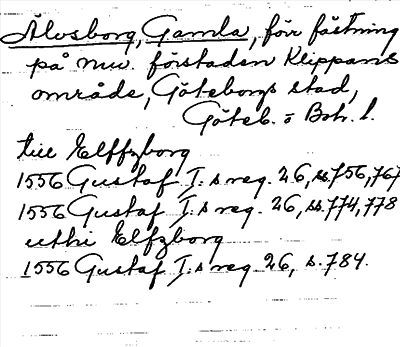 Älvsborg, Gamla, förr fästning
på nuv. förstaden Klippans
område, Göteborgs stad,
Göteb. o Boh. l.
till Elffzborg
1556 Gustaf I:s reg. 26, ss. 756, 767
1556 Gustaf I:s reg. 26, ss. 774, 778
uthi Elfzborg
1556 Gustaf I:s reg. 26, s. 784.